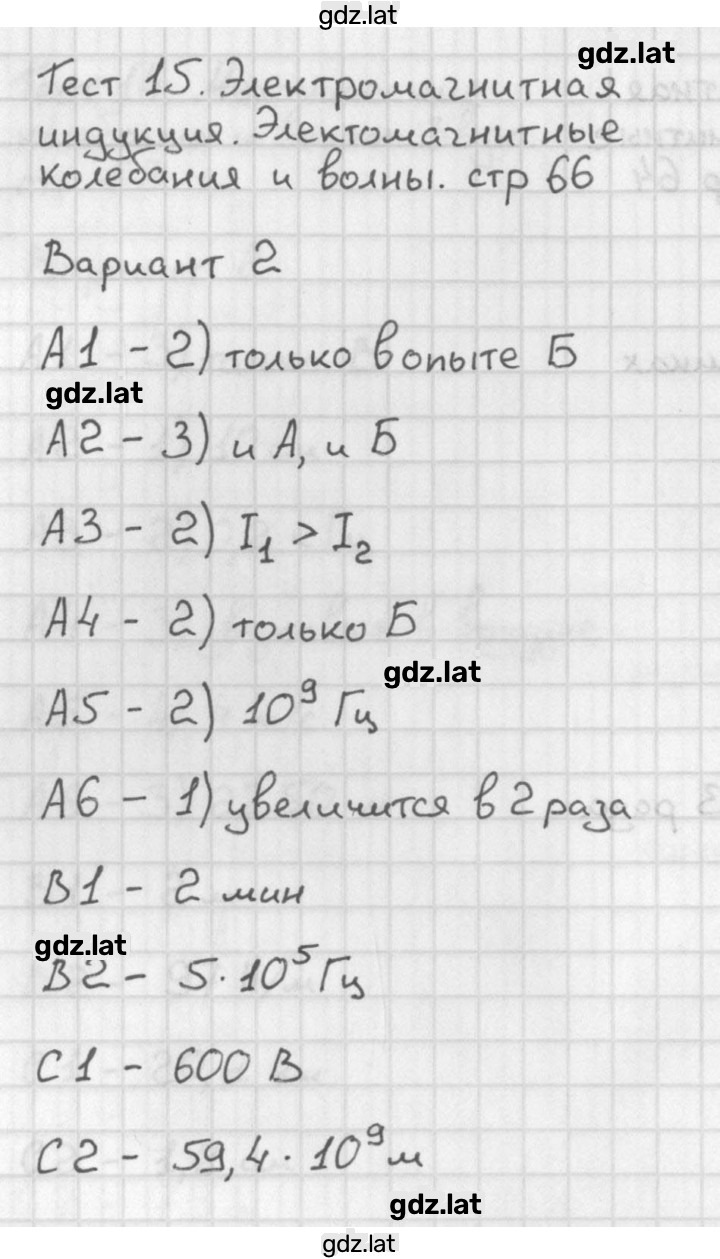 gdz.lat
gdz.lat
Тест 15. Электромагнитная
индукция. Электомагнитные
колебания и волны. стр 66
Вариант 2
А1 - 2) только в опыте Б
gdz.lat
А2 - 3) и А, и Б
А3 - 2) I₁ > I₂
А4 - 2) только Б
gdz.lat
А5 - 2) 10⁹ Гц
А6 - 1) увеличится в 2 раза
В1 - 2 мин
gdz.lat
В2 - 5·10⁵ Гц
С1 - 600 В
С2 - 59,4·10⁹ м
gdz.lat
gdz.lat